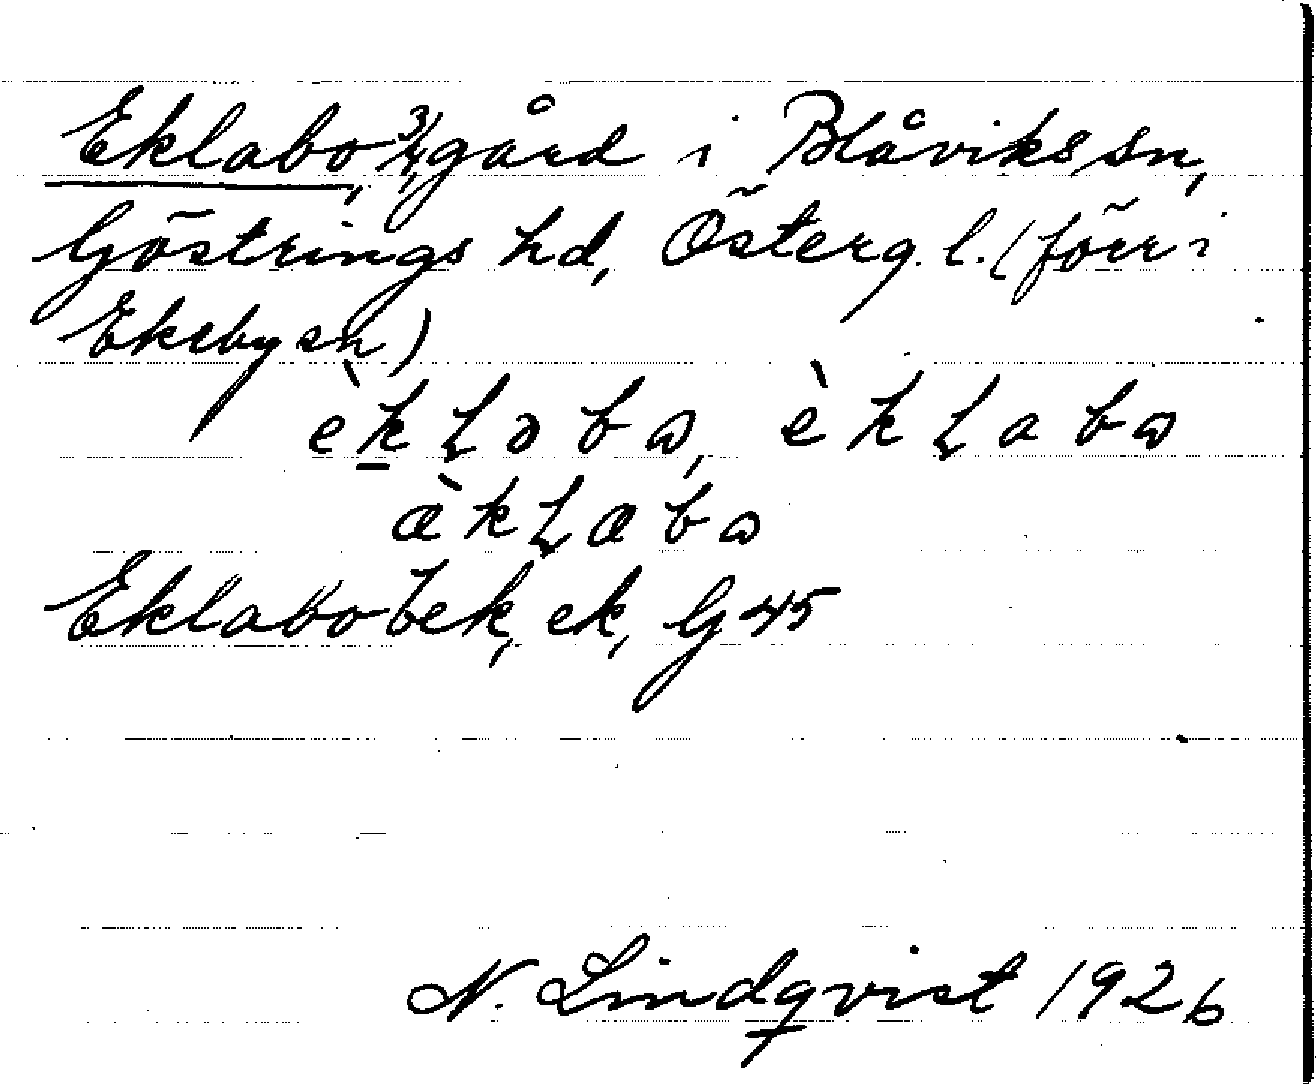 Eklabo, 3/4 gård i Blåviks sn,
Göstrings hd, Österg. l. (förr i
Ekeby sn)
èkɭəbɷ, èkɭabɷ
ækɭæbɷ
Eklabo bek, ek, G 45
N. Lindqvist 1926